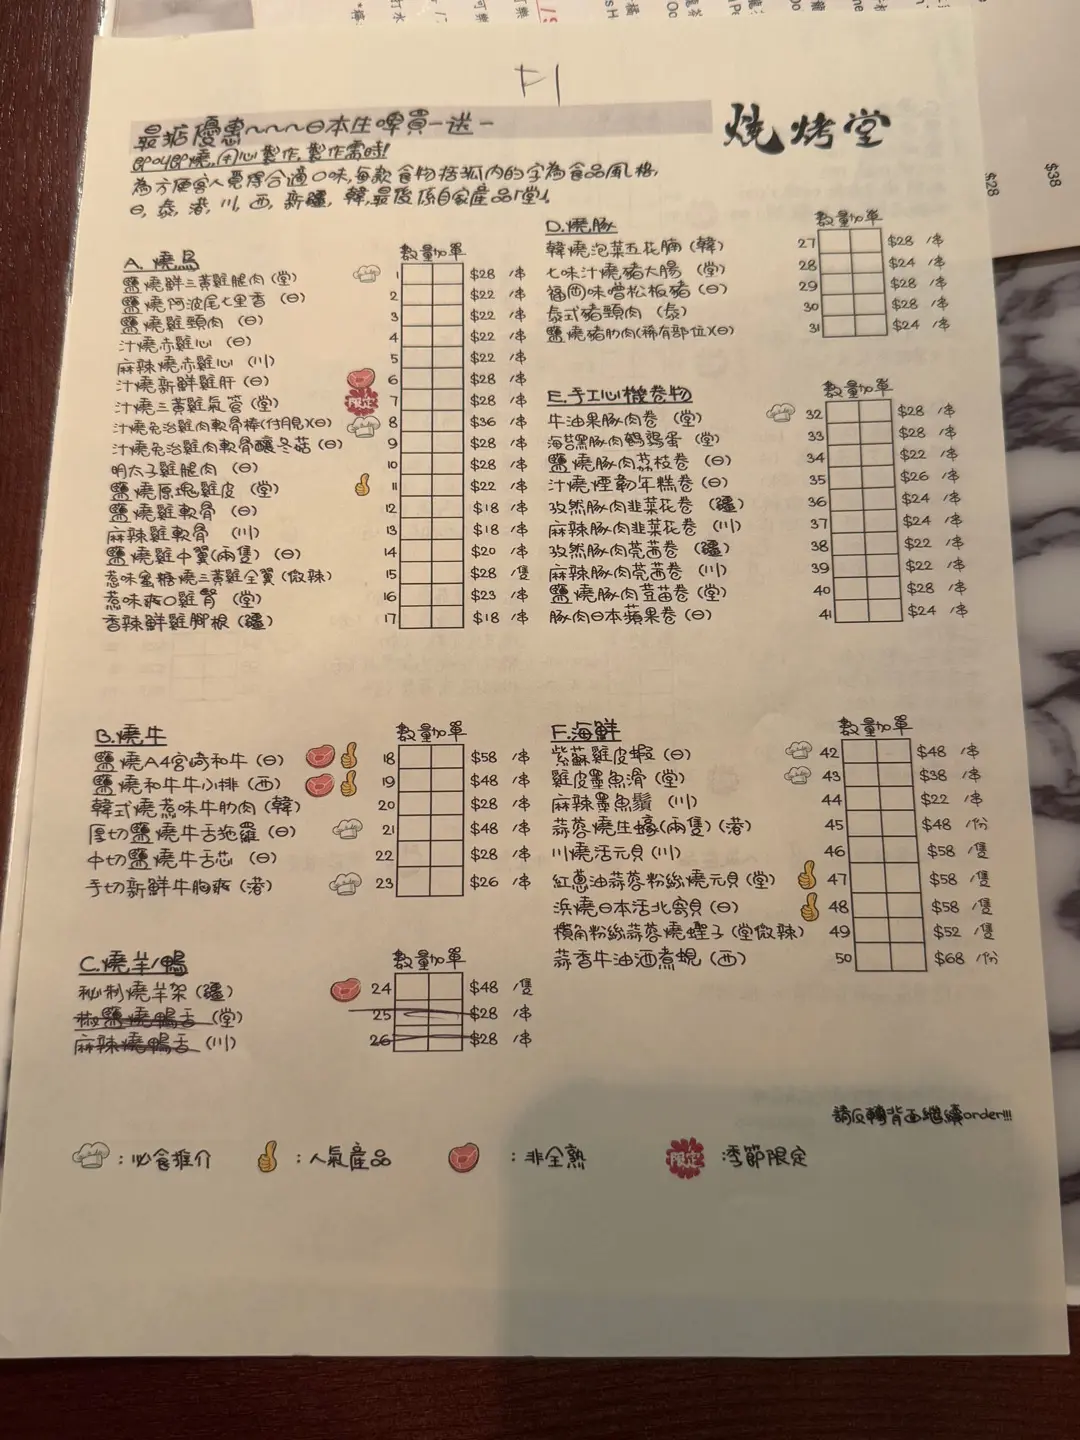 F1
最掂優惠~~~~日本生啤買一送一
燒烤堂
即叫即燒,用心製作,製作需時!
為方便客人覓得合適口味,每款食物括弧內的字為食品風格,
日, 泰, 港, 川, 西, 新疆, 韓,最後係自家產品「堂」
A. 燒鳥 數量 加單
鹽燒鮮三黃雞腿肉 (堂) 1 $28 /串
鹽燒阿波尾七里香 (日) 2 $22 /串
鹽燒雞頸肉 (日) 3 $22 /串
汁燒赤雞心 (日) 4 $22 /串
麻辣燒赤雞心 (川) 5 $22 /串
汁燒新鮮雞肝 (日) 6 $28 /串
汁燒三黃雞氣管 (堂) 限定 7 $28 /串
汁燒免治雞肉軟骨棒(付月見)(日) 8 $36 /串
汁燒免治雞肉軟骨釀冬菇 (日) 9 $28 /串
明太子雞腿肉 (日) 10 $28 /串
鹽燒原塊雞皮 (堂) 11 $22 /串
鹽燒雞軟骨 (日) 12 $18 /串
麻辣雞軟骨 (川) 13 $18 /串
鹽燒雞中翼(兩隻) (日) 14 $20 /串
惹味蜜糖燒三黃雞全翼 (微辣) 15 $28 /隻
惹味爽口雞腎 (堂) 16 $23 /串
香辣鮮雞腳根 (疆) 17 $18 /串
B.燒牛 數量 加單
鹽燒A4宮崎和牛 (日) 18 $58 /串
鹽燒和牛牛小排 (西) 19 $48 /串
韓式燒惹味牛肋肉 (韓) 20 $28 /串
厚切鹽燒牛舌拖羅 (日) 21 $48 /串
中切鹽燒牛舌芯 (日) 22 $28 /串
手切新鮮牛胸爽 (港) 23 $26 /串
C.燒羊/鴨 數量 加單
秘制燒羊架 (疆) 24 $48 /隻
椒鹽燒鴨舌 (堂) 25 $28 /串
麻辣燒鴨舌 (川) 26 $28 /串
D.燒豚 數量 加單
韓燒泡菜五花腩 (韓) 27 $28 /串
七味汁燒豬大腸 (堂) 28 $24 /串
福岡味噌松板豬 (日) 29 $28 /串
泰式豬頸肉 (泰) 30 $28 /串
鹽燒豬肋肉(稀有部位)(日) 31 $24 /串
E.手工心機卷物 數量 加單
牛油果豚肉卷 (堂) 32 $28 /串
海苔黑豚肉鵪鶉蛋 (堂) 33 $28 /串
鹽燒豚肉荔枝卷 (日) 34 $22 /串
汁燒煙韌年糕卷 (日) 35 $26 /串
孜然豚肉韭菜花卷 (疆) 36 $24 /串
麻辣豚肉韭菜花卷 (川) 37 $24 /串
孜然豚肉芫茜卷 (疆) 38 $22 /串
麻辣豚肉芫茜卷 (川) 39 $22 /串
鹽燒豚肉荳苗卷 (堂) 40 $28 /串
豚肉日本蘋果卷 (日) 41 $24 /串
F.海鮮 數量 加單
紫蘇雞皮蝦 (日) 42 $48 /串
雞皮墨魚滑 (堂) 43 $38 /串
麻辣墨魚鬚 (川) 44 $22 /串
蒜蓉燒生蠔(兩隻) (港) 45 $48 /份
川燒活元貝 (川) 46 $58 /隻
紅蔥油蒜蓉粉絲燒元貝 (堂) 47 $58 /隻
浜燒日本活北寄貝 (日) 48 $58 /隻
橫角粉絲蒜蓉燒蟶子 (堂微辣) 49 $52 /隻
蒜香牛油酒煮蜆 (西) 50 $68 /份
請反轉背面繼續order!!!
:必食推介 :人氣產品 :非全熟 限定 :季節限定
$28
$38